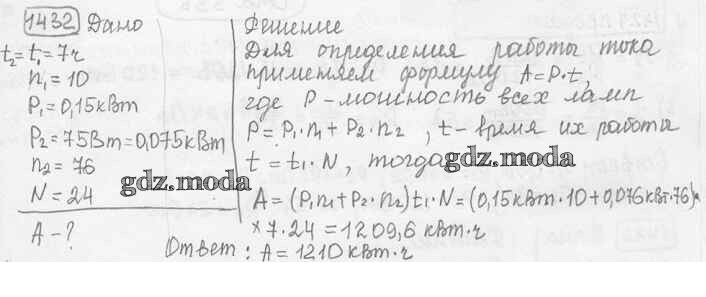 1432 Дано
t₂=t₁=7ч
n₁=10
P₁=0,15кВт
P₂=75Вт=0,075кВт
n₂=76
N=24
A-?
Решение
Для определения работы тока
применяем формулу A=P·t,
где P-мощность всех ламп
P=P₁·n₁+P₂·n₂, t-время их работы
t=t₁·N, тогда
gdz.moda
gdz.moda
A=(P₁n₁+P₂·n₂)t₁·N=(0,15кВт·10+0,076кВт·76)×
×7·24=1209,6 кВт·ч
Ответ: A=1210кВт·ч